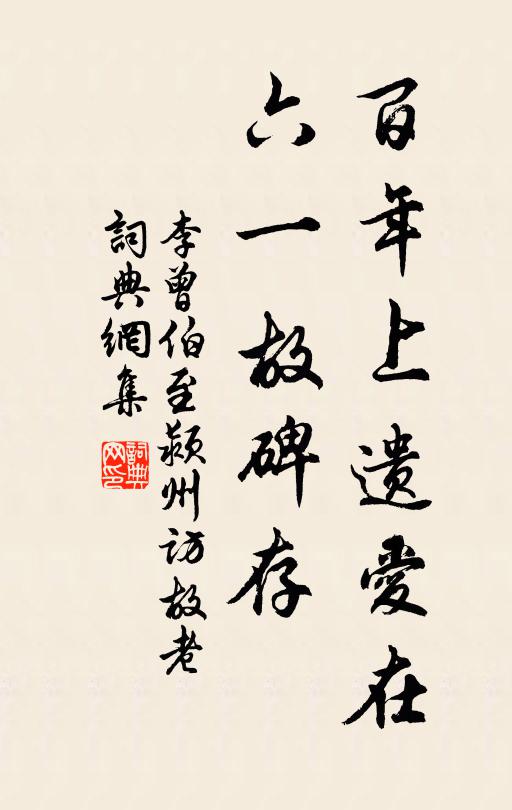 百年上遺愛在
六一故碑存
李曾伯至颍州访故老
詞典網集
詞典
网印